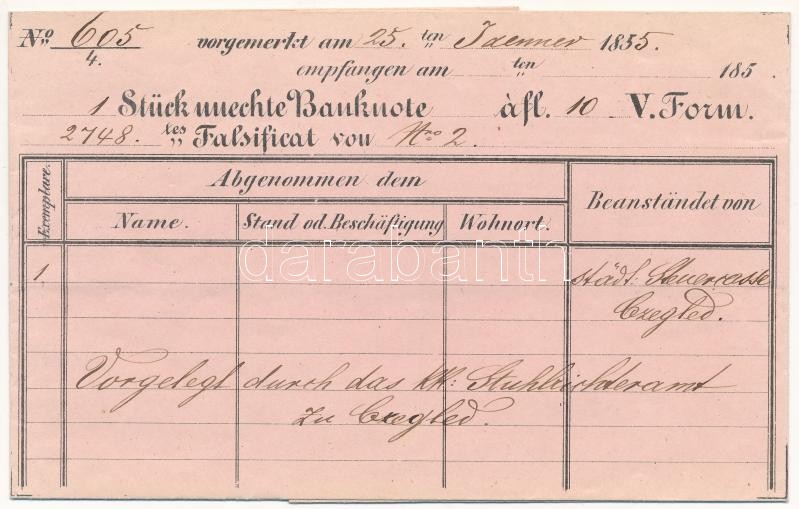 No. 605/4. vorgemerkt am 25. ten Jaenner 1855.
empfangen am ten 185 .
1 Stück unechte Banknote à fl. 10 V. Form.
2748. tes Falsificat von Nro 2.
Exemplare.
Abgenommen dem
Beanständet von
Name. Stand od. Beschäftigung Wohnort.
1 städt. Steuercasse
Czegled.
Vorgelegt durch das kk: Stuhlrichteramt
zu Czegled.
darabanth